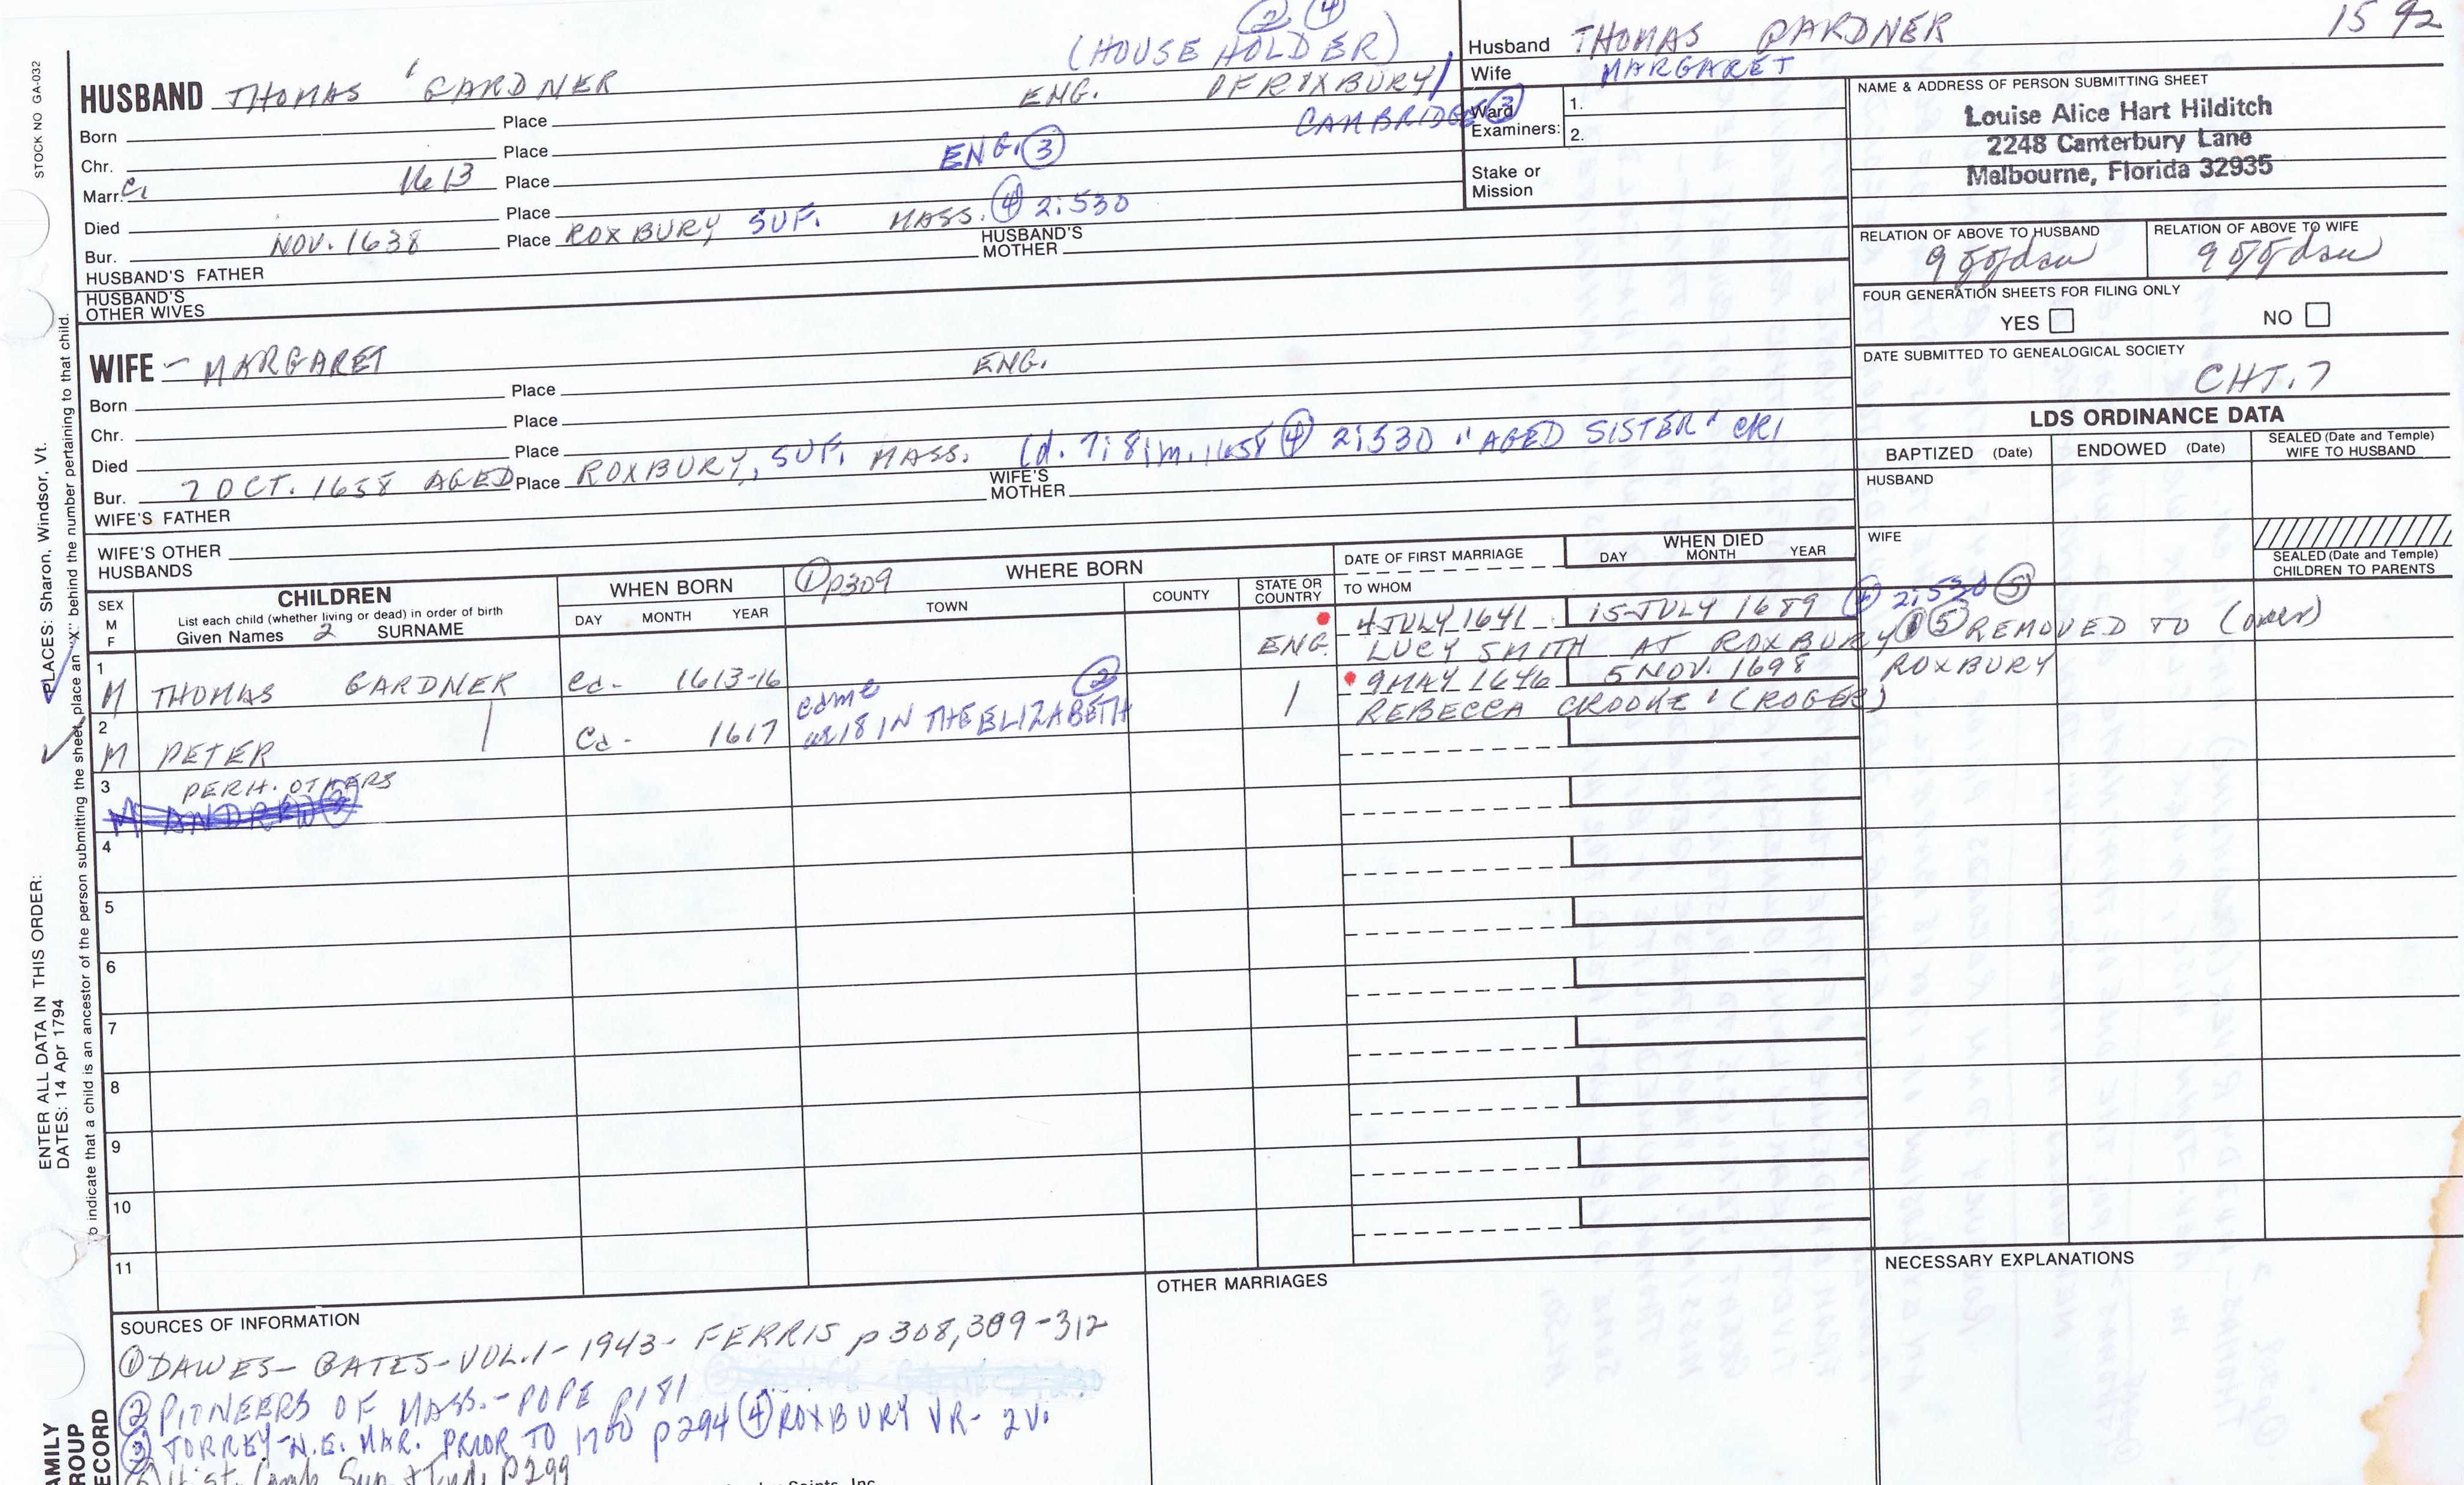 ② ④
(HOUSE HOLDER)
Husband THOMAS GARDNER 1592
Wife MARGARET
STOCK NO GA-032
HUSBAND THOMAS GARDNER ENG. OF ROXBURY/
CAMBRIDGE ③
Ward
Examiners: 1.
2.
Stake or
Mission
NAME & ADDRESS OF PERSON SUBMITTING SHEET
Louise Alice Hart Hilditch
2248 Canterbury Lane
Melbourne, Florida 32935
Born Place
Chr. Place
Marr. 1613 Place ENG. ③
Died Place
Bur. NOV. 1638 Place ROXBURY SUF. MASS. ④ 2:530
HUSBAND'S FATHER HUSBAND'S MOTHER
HUSBAND'S
OTHER WIVES
RELATION OF ABOVE TO HUSBAND RELATION OF ABOVE TO WIFE
FOUR GENERATION SHEETS FOR FILING ONLY
YES NO
DATE SUBMITTED TO GENEALOGICAL SOCIETY
CHT. 7
WIFE - MARGARET ENG.
Born Place
Chr. Place
Died Place
Bur. 7 OCT. 1658 AGED Place ROXBURY, SUF. MASS. (d. 7:8:m. 1658 ④ 2:530 "AGED SISTER" CR1
WIFE'S FATHER WIFE'S MOTHER
WIFE'S OTHER
HUSBANDS
LDS ORDINANCE DATA
BAPTIZED (Date) ENDOWED (Date) SEALED (Date and Temple) WIFE TO HUSBAND
HUSBAND
WIFE
SEALED (Date and Temple)
CHILDREN TO PARENTS
SEX
M
F
CHILDREN
List each child (whether living or dead) in order of birth
Given Names 2 SURNAME
WHEN BORN
DAY MONTH YEAR
① p309 WHERE BORN
TOWN COUNTY STATE OR COUNTRY
DATE OF FIRST MARRIAGE
TO WHOM
WHEN DIED
DAY MONTH YEAR
1 M THOMAS GARDNER Ca- 1613-16 ENG. 4 JULY 1641 15 JULY 1689 ④ 2:530 ⑤
LUCY SMITH AT ROXBURY ① ⑤ REMOVED TO (over)
ROXBURY
2 M PETER Ca- 1617 came ②
IN THE ELIZABETH
9 MAY 1646 5 NOV. 1698
REBECCA CROOKE (ROGER)
3 PERH. OTHERS
M ANDREW ③
4
5
6
7
8
9
10
11
ENTER ALL DATA IN THIS ORDER:
DATES: 14 Apr 1794
PLACES: Sharon, Windsor, Vt.
To indicate that a child is an ancestor of the person submitting the sheet, place an "X" behind the number pertaining to that child.
SOURCES OF INFORMATION
① DAWES-GATES-VOL.1-1943-FERRIS p308,309-312
② PIONEERS OF MASS.-POPE p181
③ TORREY-N.E. MAR. PRIOR TO 1700 p294 ④ ROXBURY VR- 2V.
Hist. Camb. Sup. & Ind. p299
OTHER MARRIAGES
NECESSARY EXPLANATIONS
FAMILY
GROUP
RECORD
Saints, Inc.